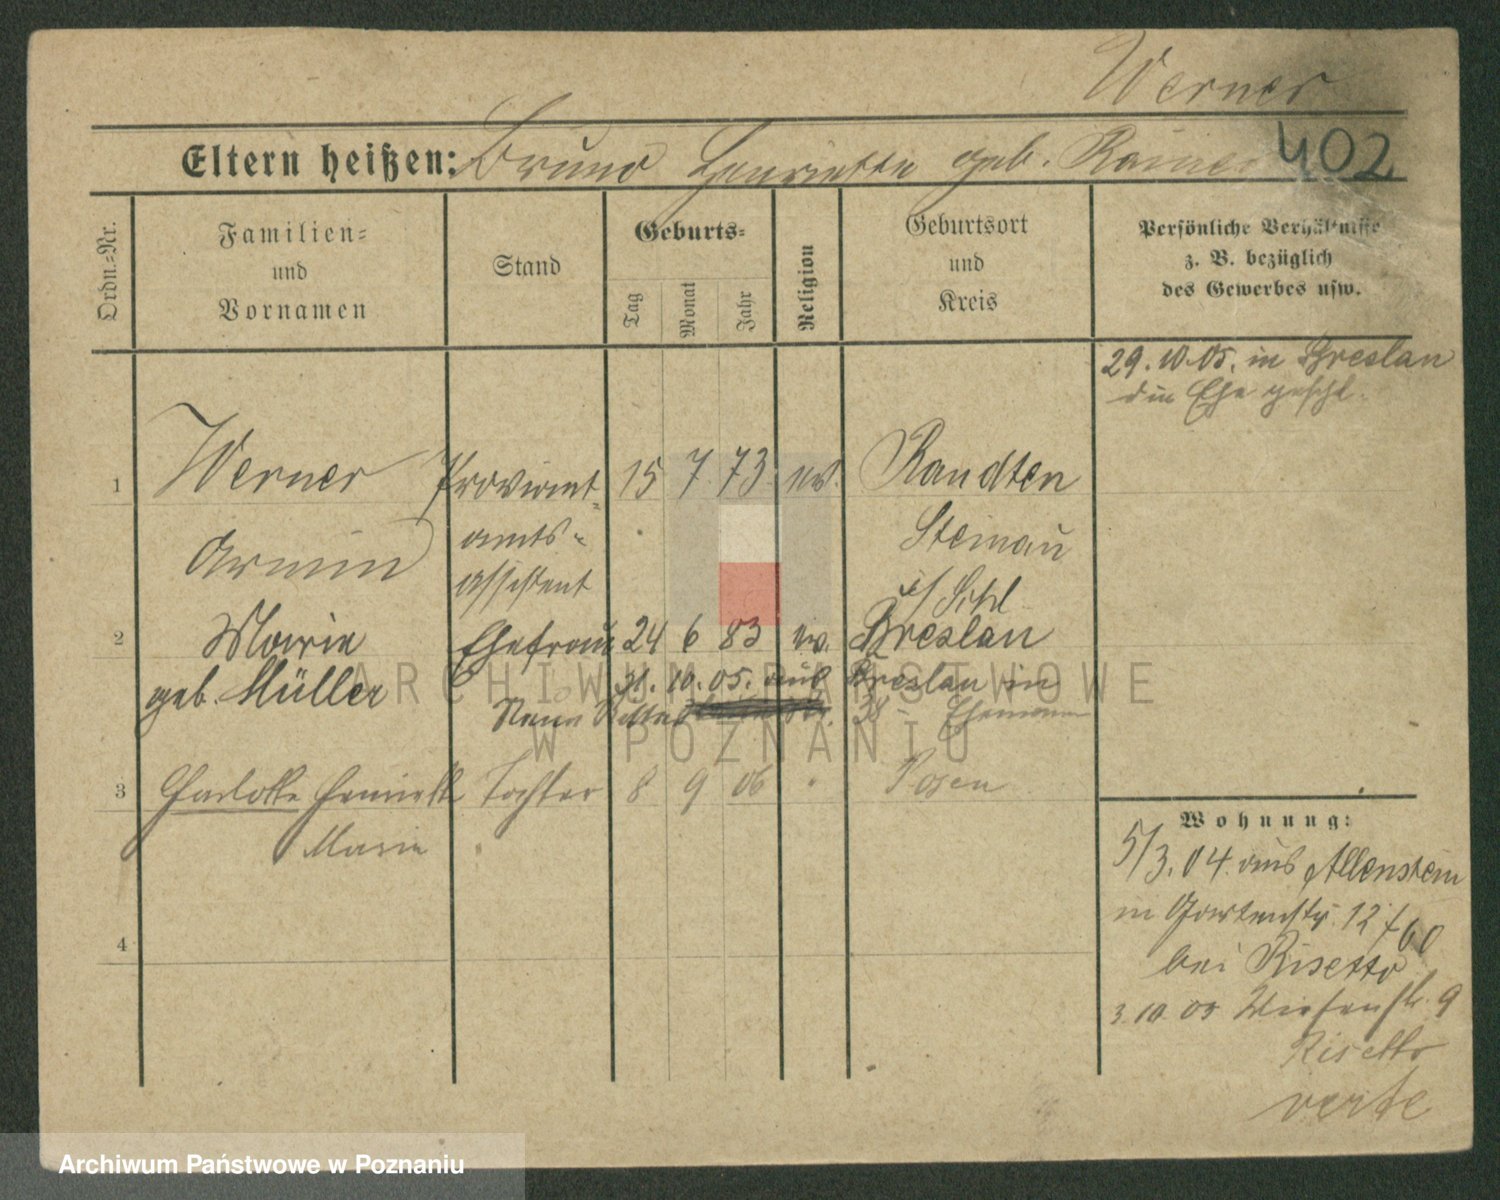 Werner
402
Eltern heißen: Bruno Henriette geb. Rainer
Ordn.-Nr.
Familien-
und
Vornamen
Stand
Geburts-
Tag
Monat
Jahr
Religion
Geburtsort
und
Kreis
Persönliche Verhältnisse
z. B. bezüglich
des Gewerbes usw.
29.10.05. in Breslau
die Ehe geschl.
1 Werner Proviant- 15 7. 73. ev. Randten
Armin amts- Steinau
assistent a/ Schl
2 Marie Ehefrau 24 6 83 ev. Breslau
geb. Müller 31. 10. 05. aus Breslau in
38 Ehemann
3 Charlotte Henriette Tochter 8 9 06 " Posen
Marie
4
Wohnung:
5/3. 04. aus Allenstein
in Gartenstr. 12
bei Risetto
3.10.05 Wiesenstr. 9
Risetto
verte
ARCHIWUM PAŃSTWOWE
W POZNANIU
Archiwum Państwowe w Poznaniu